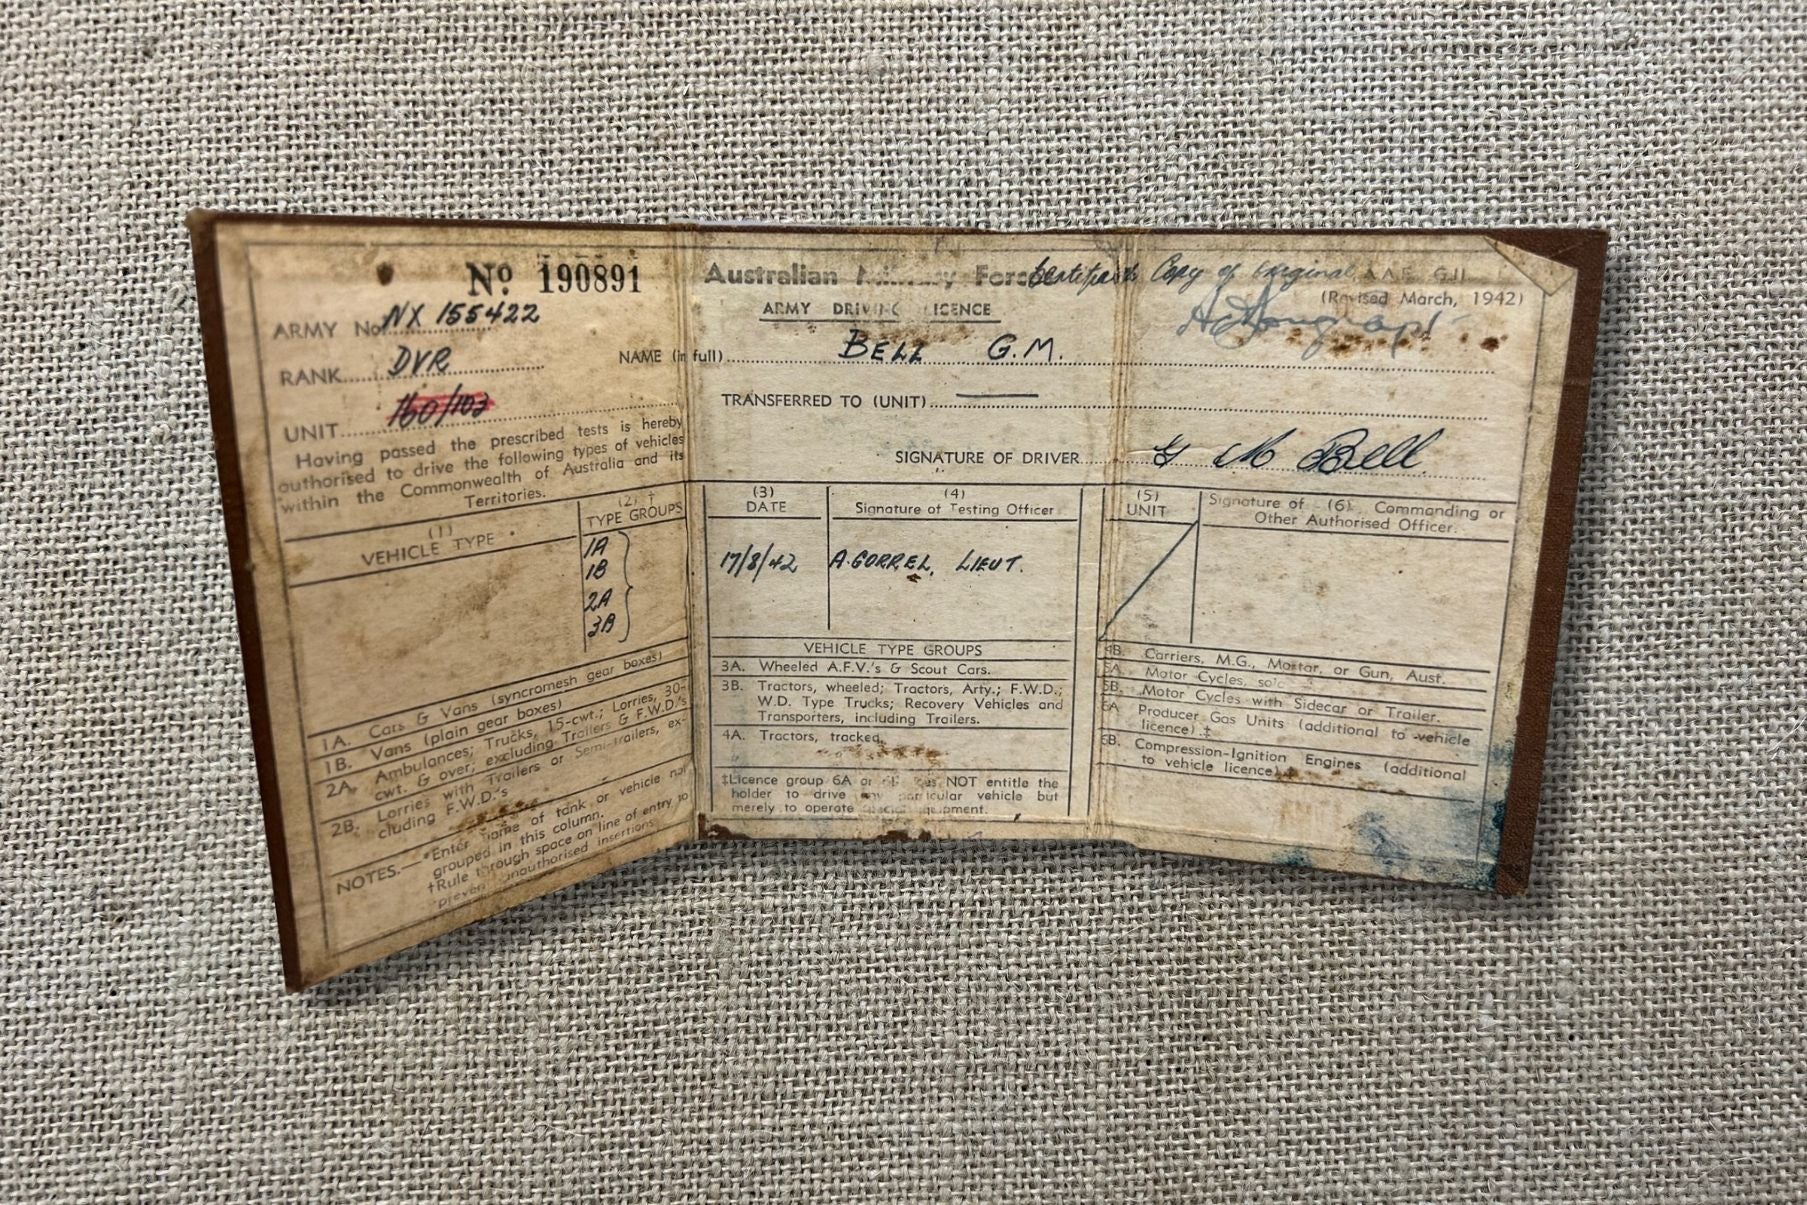 No. 190891
ARMY No. NX 155422
RANK DVR
UNIT 160/103
Having passed the prescribed tests is hereby
authorised to drive the following types of vehicles
within the Commonwealth of Australia and its
Territories.
(1)
VEHICLE TYPE *
(2) †
TYPE GROUPS
1A
1B
2A
3B
1A. Cars & Vans (syncromesh gear boxes)
1B. Vans (plain gear boxes)
2A. Ambulances; Trucks, 15-cwt.; Lorries, 30-
cwt. & over; excluding Trailers & F.W.D.'s
2B. Lorries with Trailers or Semi-trailers, ex-
cluding F.W.D.'s
NOTES.— *Enter name of tank or vehicle not
grouped in this column.
†Rule through space on line of entry to
prevent unauthorised insertions.
Australian Military Forces
Copy of Original
A.A.F. G.II
ARMY DRIVING LICENCE
(Revised March, 1942)
NAME (in full) BELL G.M.
TRANSFERRED TO (UNIT) —
SIGNATURE OF DRIVER G M Bell
(3)
DATE
(4)
Signature of Testing Officer
17/8/42 A. GORREL, LIEUT.
VEHICLE TYPE GROUPS
3A. Wheeled A.F.V.'s & Scout Cars.
3B. Tractors, wheeled; Tractors, Arty.; F.W.D.;
W.D. Type Trucks; Recovery Vehicles and
Transporters, including Trailers.
4A. Tractors, tracked.
‡Licence group 6A or 6B does NOT entitle the
holder to drive any particular vehicle but
merely to operate special equipment.
(5)
UNIT
Signature of (6) Commanding or
Other Authorised Officer.
4B. Carriers, M.G., Mortar, or Gun, Aust.
5A. Motor Cycles, solo
5B. Motor Cycles with Sidecar or Trailer.
6A. Producer Gas Units (additional to vehicle
licence).‡
6B. Compression-Ignition Engines (additional
to vehicle licence)